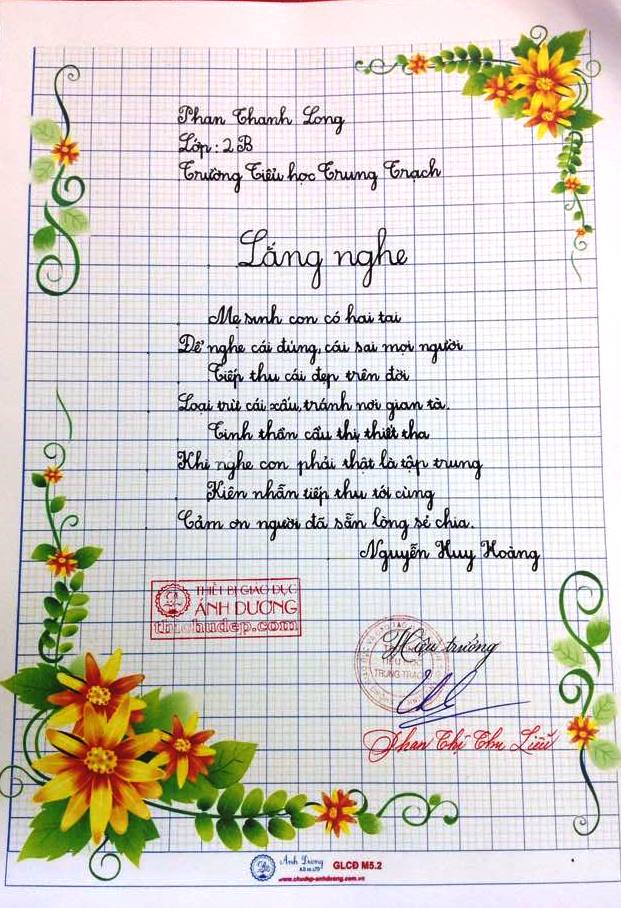 Phan Thanh Long
Lớp: 2B
Trường Tiểu học Trung Trạch
Lắng nghe
Mẹ sinh con có hai tai
Để nghe cái đúng, cái sai mọi người
Tiếp thu cái đẹp trên đời
Loại trừ cái xấu, tránh nơi gian tà.
Tinh thần cầu thị thiết tha
Khi nghe con phải thật là tập trung
Kiên nhẫn tiếp thu tới cùng
Cảm ơn người đã sẵn lòng sẻ chia.
Nguyễn Huy Hoàng
THIẾT BỊ GIÁO DỤC
ÁNH DƯƠNG
thuchudep.com
Hiệu trưởng
TIỂU
TRUNG TRẠCH
Phan Thị Thu Liễu
Ánh Dương
GLCĐ M5.2
www.chudep-anhduong.com.vn